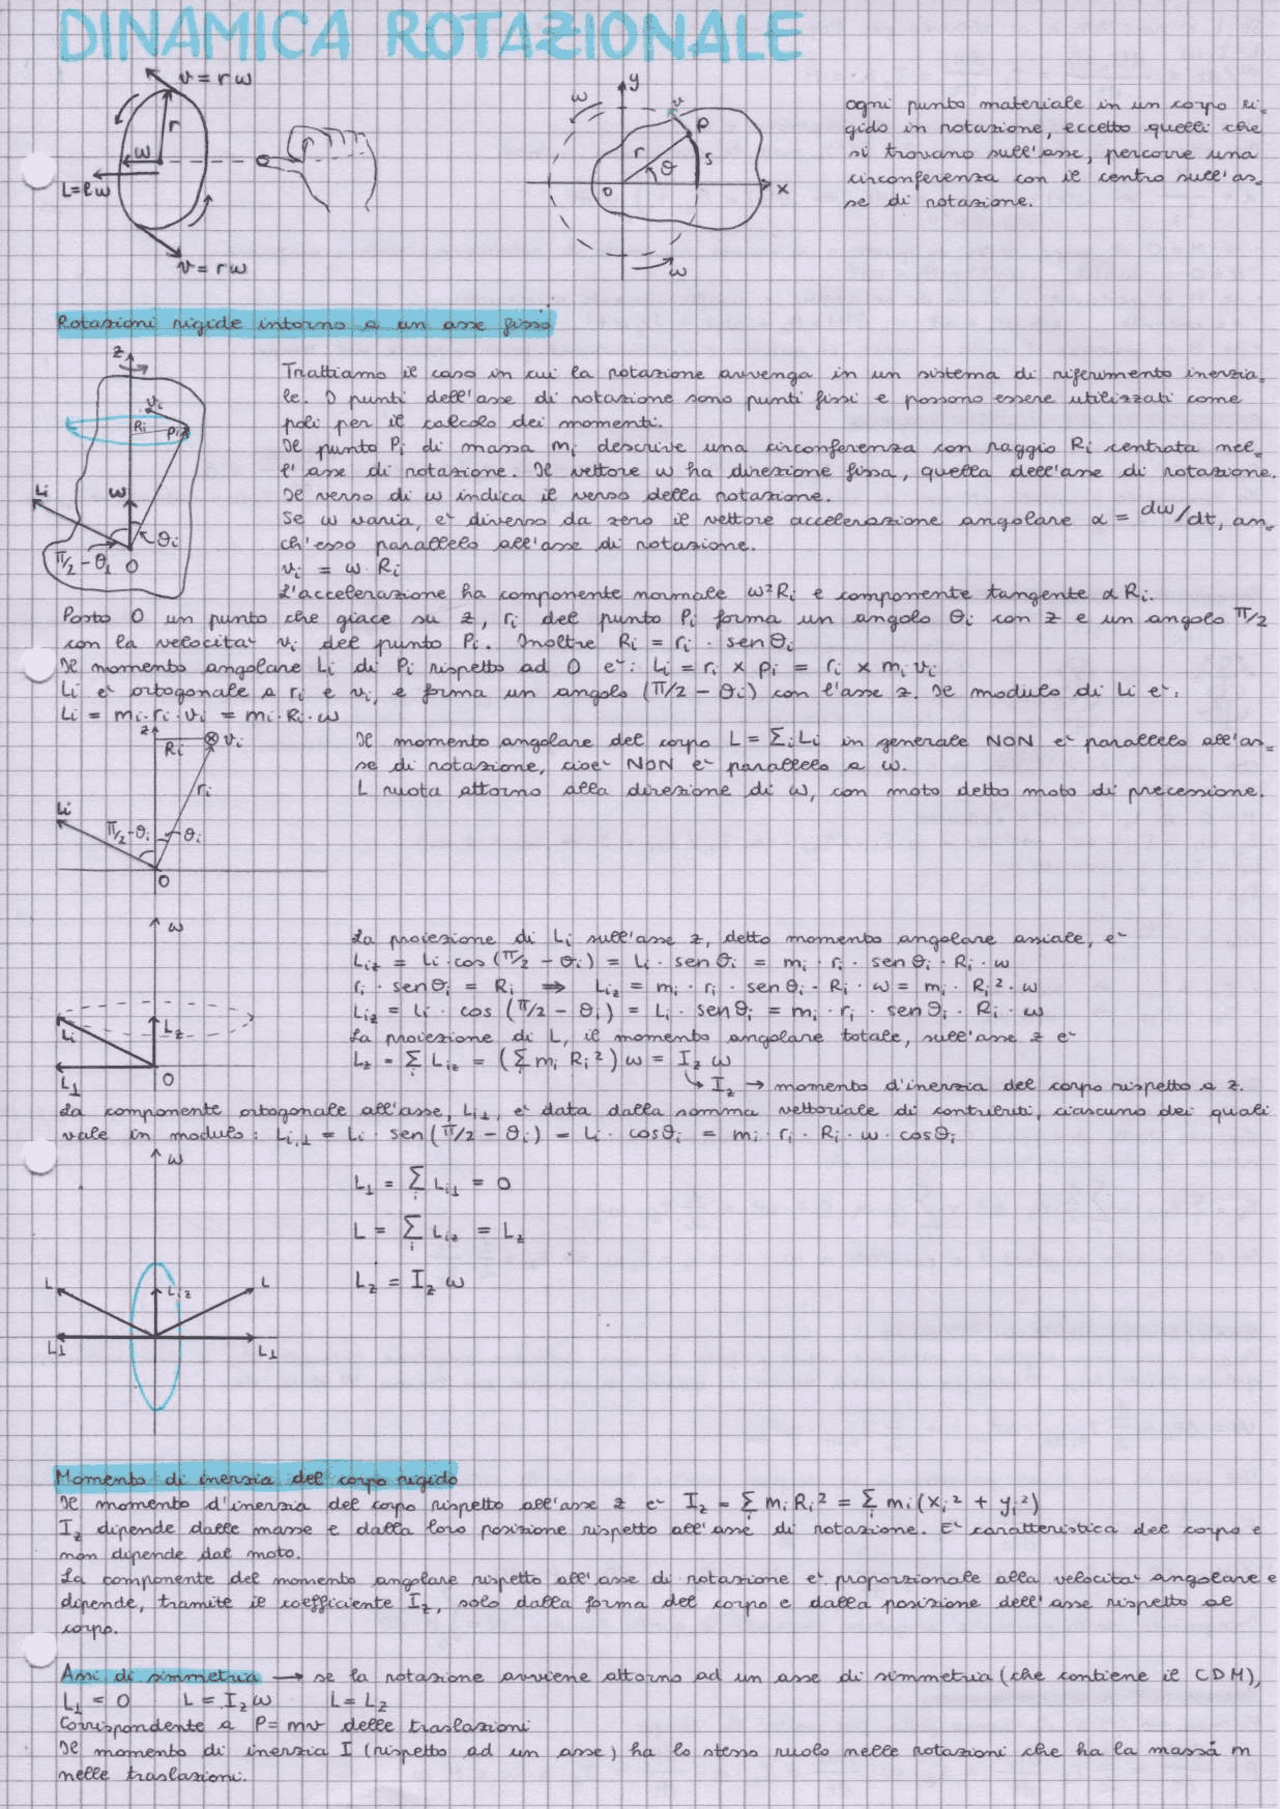 DINAMICA ROTAZIONALE
v = r ω
r
ω
L=lω
v = r ω
y
ω
v
P
r
θ
s
O
x
ω
ogni punto materiale in un corpo ri-
gido in rotazione, eccetto quelli che
si trovano sull'asse, percorre una
circonferenza con il centro sull'as-
se di rotazione.
Rotazioni rigide intorno a un asse fisso
z
vi
Ri
Pi
Li
ω
θi
π/2 - θi
O
Trattiamo il caso in cui la rotazione avvenga in un sistema di riferimento inerzia-
le. I punti dell'asse di rotazione sono punti fissi e possono essere utilizzati come
poli per il calcolo dei momenti.
Il punto Pi di massa mi descrive una circonferenza con raggio Ri centrata nel-
l'asse di rotazione. Il vettore ω ha direzione fissa, quella dell'asse di rotazione.
Il verso di ω indica il verso della rotazione.
Se ω varia, e' diverso da zero il vettore accelerazione angolare α = dω/dt, an-
ch'esso parallelo all'asse di rotazione.
vi = ω · Ri
L'accelerazione ha componente normale ω²Ri e componente tangente α Ri.
Posto O un punto che giace su z, ri del punto Pi forma un angolo θi con z e un angolo π/2
con la velocita' vi del punto Pi. Inoltre Ri = ri · senθi
Il momento angolare Li di Pi rispetto ad O e': Li = ri × pi = ri × mi vi
Li e' ortogonale a ri e vi, e forma un angolo (π/2 - θi) con l'asse z. Il modulo di Li e':
Li = mi·ri·vi = mi·Ri·ω
z
Ri
vi
ri
Li
π/2-θi
θi
O
Il momento angolare del corpo L = Σi Li in generale NON e' parallelo all'as-
se di rotazione, cioe' NON e' parallelo a ω.
L ruota attorno alla direzione di ω, con moto detto moto di precessione.
ω
Li
Lz
L⊥
O
La proiezione di Li sull'asse z, detto momento angolare assiale, e'
Liz = Li · cos (π/2 - θi) = Li · senθi = mi · ri · senθi · Ri · ω
ri · senθi = Ri ⇒ Liz = mi · ri · senθi · Ri · ω = mi · Ri² · ω
Liz = Li · cos (π/2 - θi) = Li · senθi = mi · ri · senθi · Ri · ω
La proiezione di L, il momento angolare totale, sull'asse z e'
Lz = Σi Liz = (Σi mi Ri²) ω = Iz ω
↳ Iz → momento d'inerzia del corpo rispetto a z.
La componente ortogonale all'asse, Li⊥, e' data dalla somma vettoriale di contributi, ciascuno dei quali
vale in modulo: Li,⊥ = Li · sen(π/2 - θi) = Li · cosθi = mi · ri · Ri · ω · cosθi
ω
L⊥ = Σi Li⊥ = 0
L = Σi Liz = Lz
Lz = Iz ω
L
Liz
L
L⊥
L⊥
Momento di inerzia del corpo rigido
Il momento d'inerzia del corpo rispetto all'asse z e' Iz = Σi mi Ri² = Σi mi (xi² + yi²)
Iz dipende dalle masse e dalla loro posizione rispetto all'asse di rotazione. E' caratteristica del corpo e
non dipende dal moto.
La componente del momento angolare rispetto all'asse di rotazione e' proporzionale alla velocita' angolare e
dipende, tramite il coefficiente Iz, solo dalla forma del corpo e dalla posizione dell'asse rispetto al
corpo.
Assi di simmetria → se la rotazione avviene attorno ad un asse di simmetria (che contiene il CDM),
L⊥ = 0 L = Iz ω L = Lz
Corrispondente a P = mv delle traslazioni
Il momento di inerzia I (rispetto ad un asse) ha lo stesso ruolo nelle rotazioni che ha la massa m
nelle traslazioni.